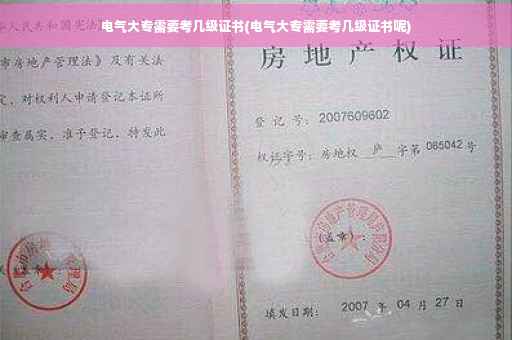 电气大专需要考几级证书(电气大专需要考几级证书呢)
人民共和国宪法
市房地产管理法》及有关法
定，对权利人申请登记本证所
审查属实，准予登记，特发此
房地产权证
登记号：2007609602
权证字号：房地权 庐 字第 065042 号
(盖章)：
填发日期：2007 年 04 月 27 日